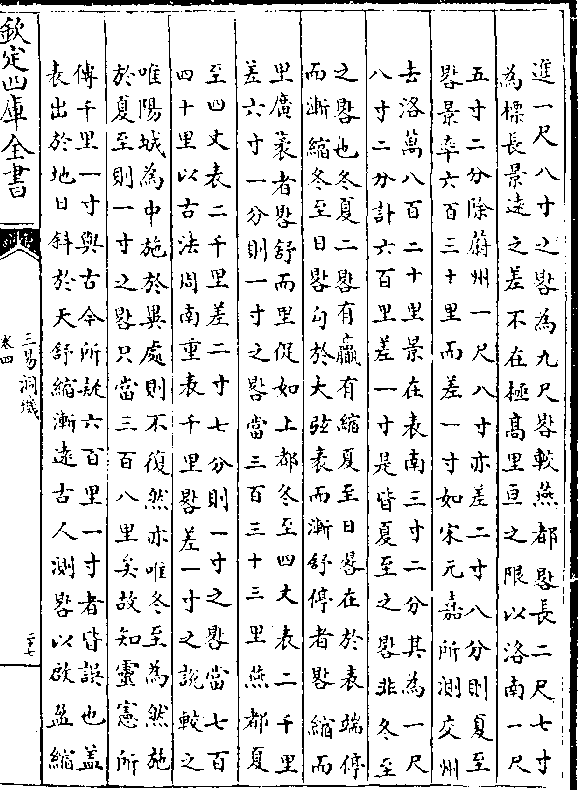 進一尺八寸之晷為九尺晷較燕都晷長二尺七寸
為標長景遠之差不在極髙里亘之限以洛南一尺
五寸二分除蔚州一尺八寸亦差二寸八分則夏至
晷景率六百三十里而差一寸如宋元嘉所測交州
去洛萬八百二十里景在表南三寸二分其為一尺
八寸二分計六百里差一寸是皆夏至之晷非冬至
之晷也冬夏二晷有贏有縮夏至日晷在於表端停
而漸縮冬至日晷勾於大弦表而漸舒停者晷縮而
里廣袤者晷舒而里促如上都冬至四丈表二千里
差六寸一分則一寸之晷當三百三十三里燕都夏
至四丈表二千里差二寸七分則一寸之晷當七百
四十里以古法周南重表千里晷差一寸之說較之
唯陽城為中施於異處則不復然亦唯冬至為然施
於夏至則一寸之晷只當三百八里矣故知靈憲所
傳千里一寸與古今所訛六百里一寸者皆誤也蓋
表出於地日斜於天舒縮漸遠古人測晷以啟盈縮
欽定四庫全書
三易洞璣
卷四
二十七